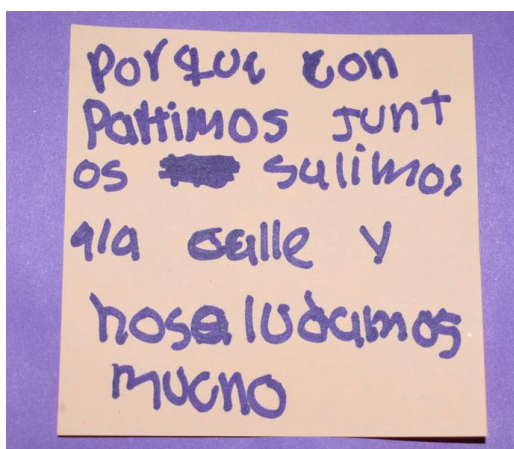 Por que con
Partimos junt
os salimos
a la calle y
nos aludamos
mucho